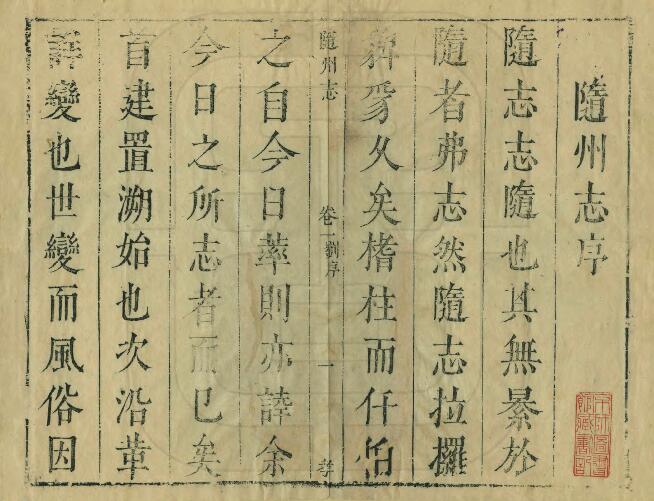 隨州志序
隨志志隨也其無於
隨者弗志然隨志拉攞
豸久矣榰柱而仟伯
隨州志 卷一劉序 一 孝
之自今日則亦余
今日之所志者而已矣
首建置溯始也次沿革
詳變也世變而風俗因